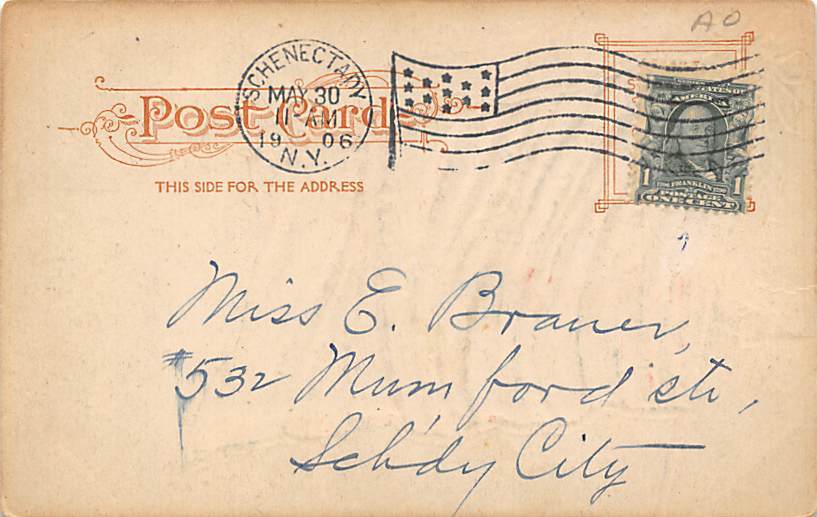 AO
SCHENECTADY
MAY 30
11-AM
19 06
N.Y.
Post Card
THIS SIDE FOR THE ADDRESS
STATES OF
AMERICA
FRANKLIN
1 POSTAGE 1
ONE CENT
Miss E. Brauer,
#532 Mumford str,
Schdy City